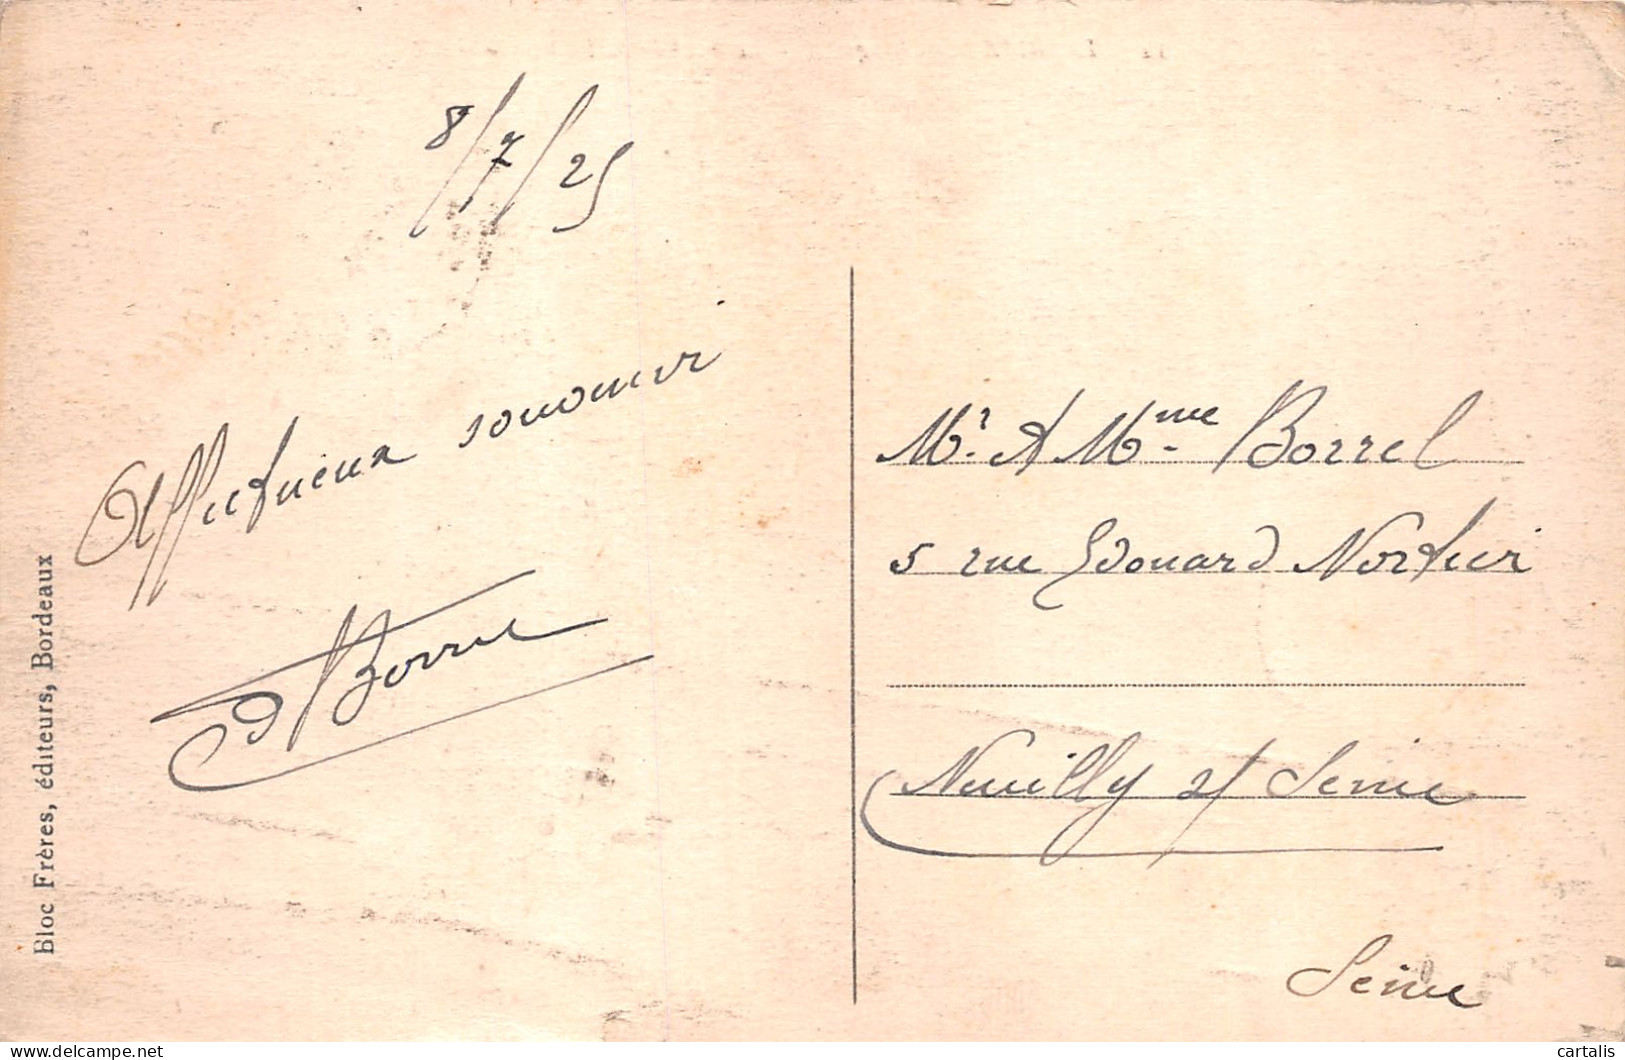 8/7/25
Affectueux souvenir
Borrel
Bloc Frères, éditeurs, Bordeaux
Mr & Mme Borrel
5 rue Edouard Nortier
Neuilly s/ Seine
Seine
delcampe.net
cartalis